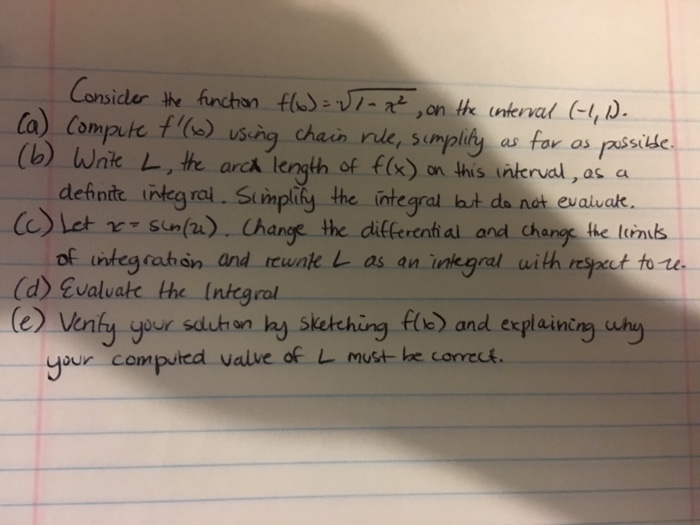 Consider the function f(x) = √1-x² , on the interval (-1, 1).
(a) Compute f'(x) using chain rule, simplify as far as possible.
(b) Write L, the arc length of f(x) on this interval, as a
definite integral. Simplify the integral but do not evaluate.
(c) Let x = sin(u). Change the differential and change the limits
of integration and rewrite L as an integral with respect to u.
(d) Evaluate the Integral
(e) Verify your solution by sketching f(x) and explaining why
your computed value of L must be correct.